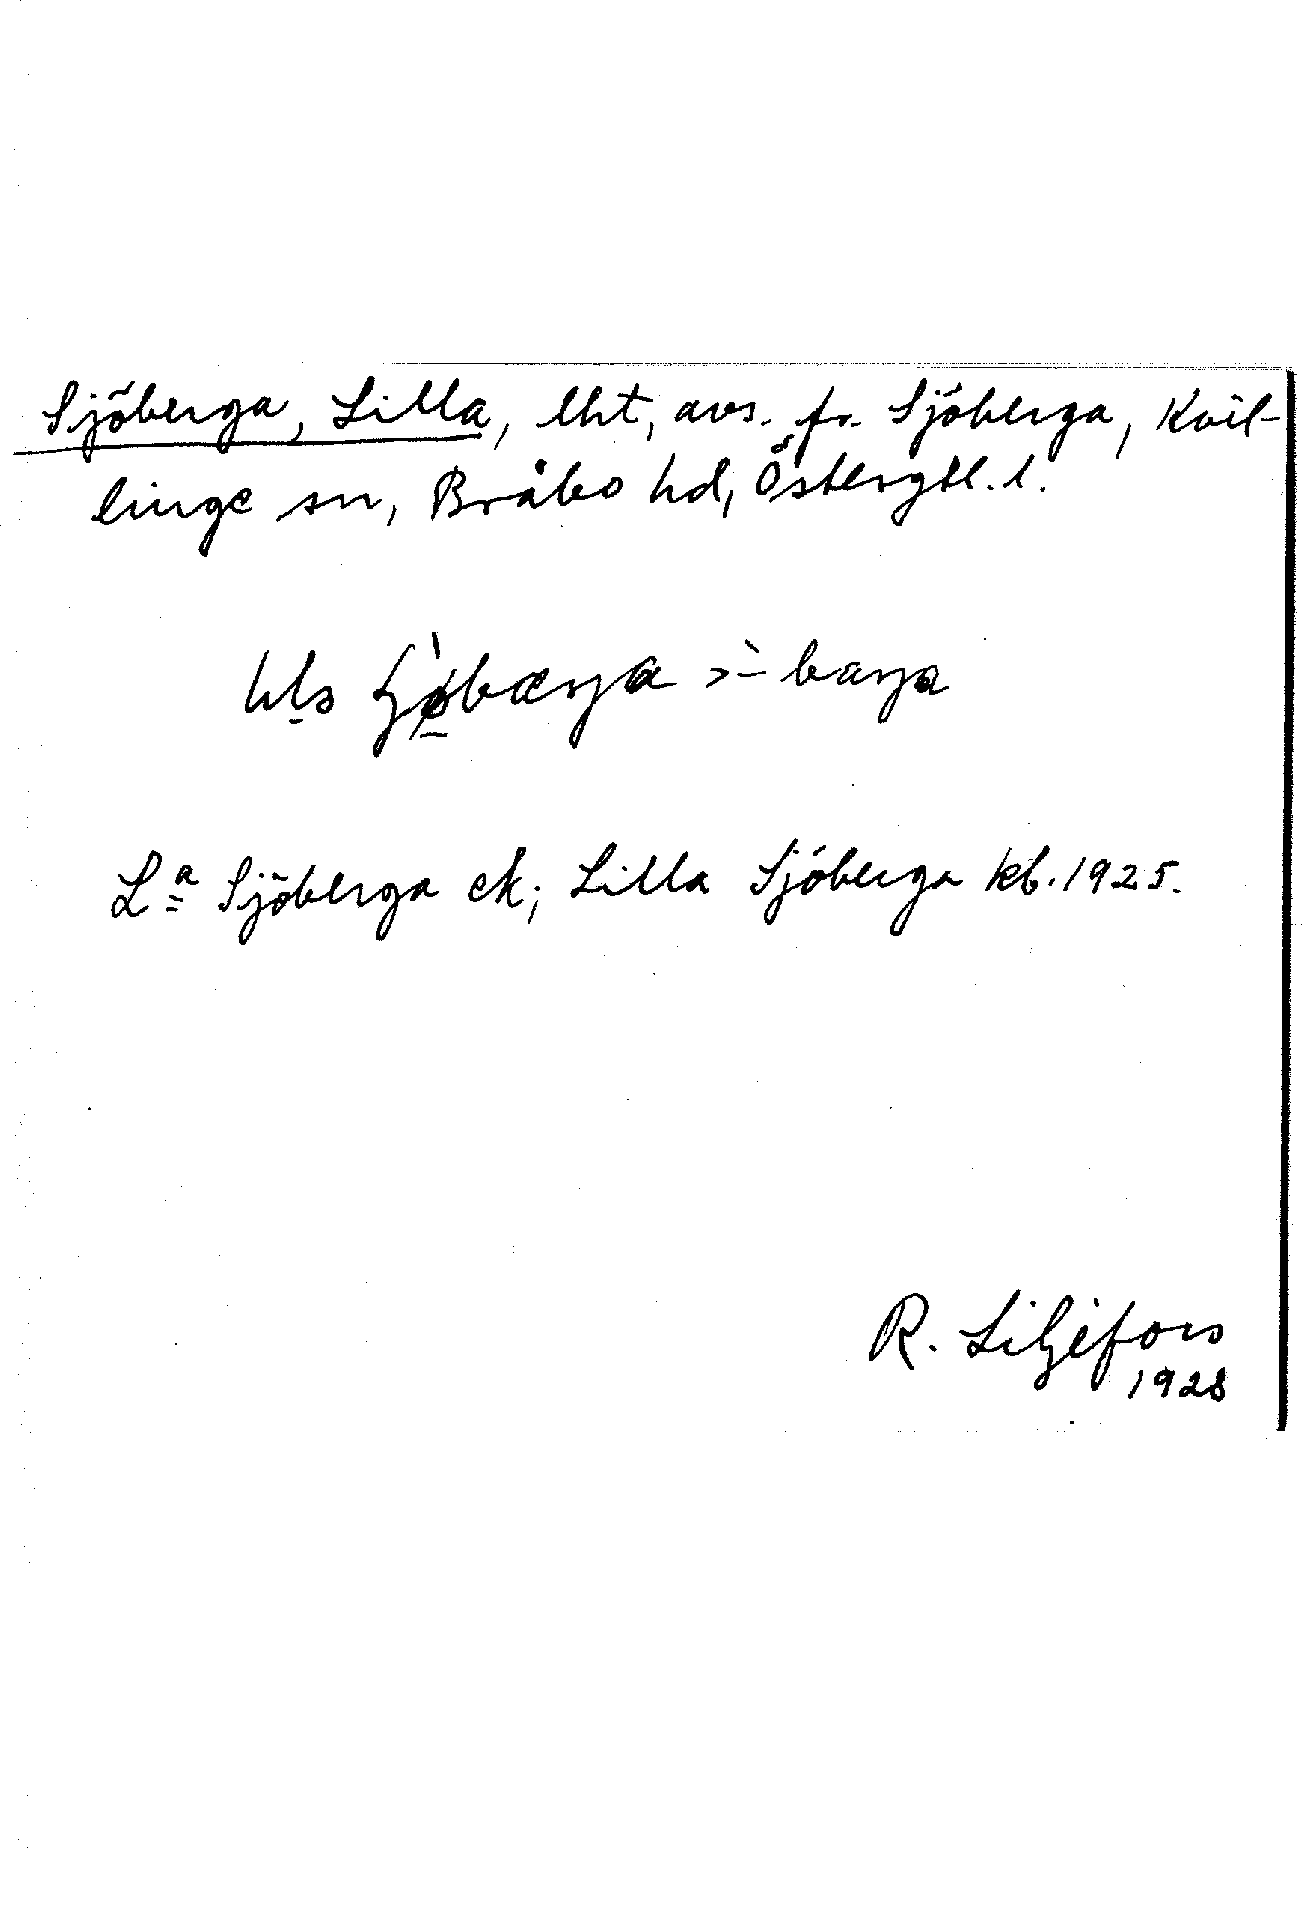 Sjöberga, Lilla, lht, avs. fr. Sjöberga, Kvil-
linge sn, Bråbo hd, Östergtl. l.
L<sup>a</sup> Sjöberga ek; Lilla Sjöberga kb. 1925.
R. Liljefors
1928